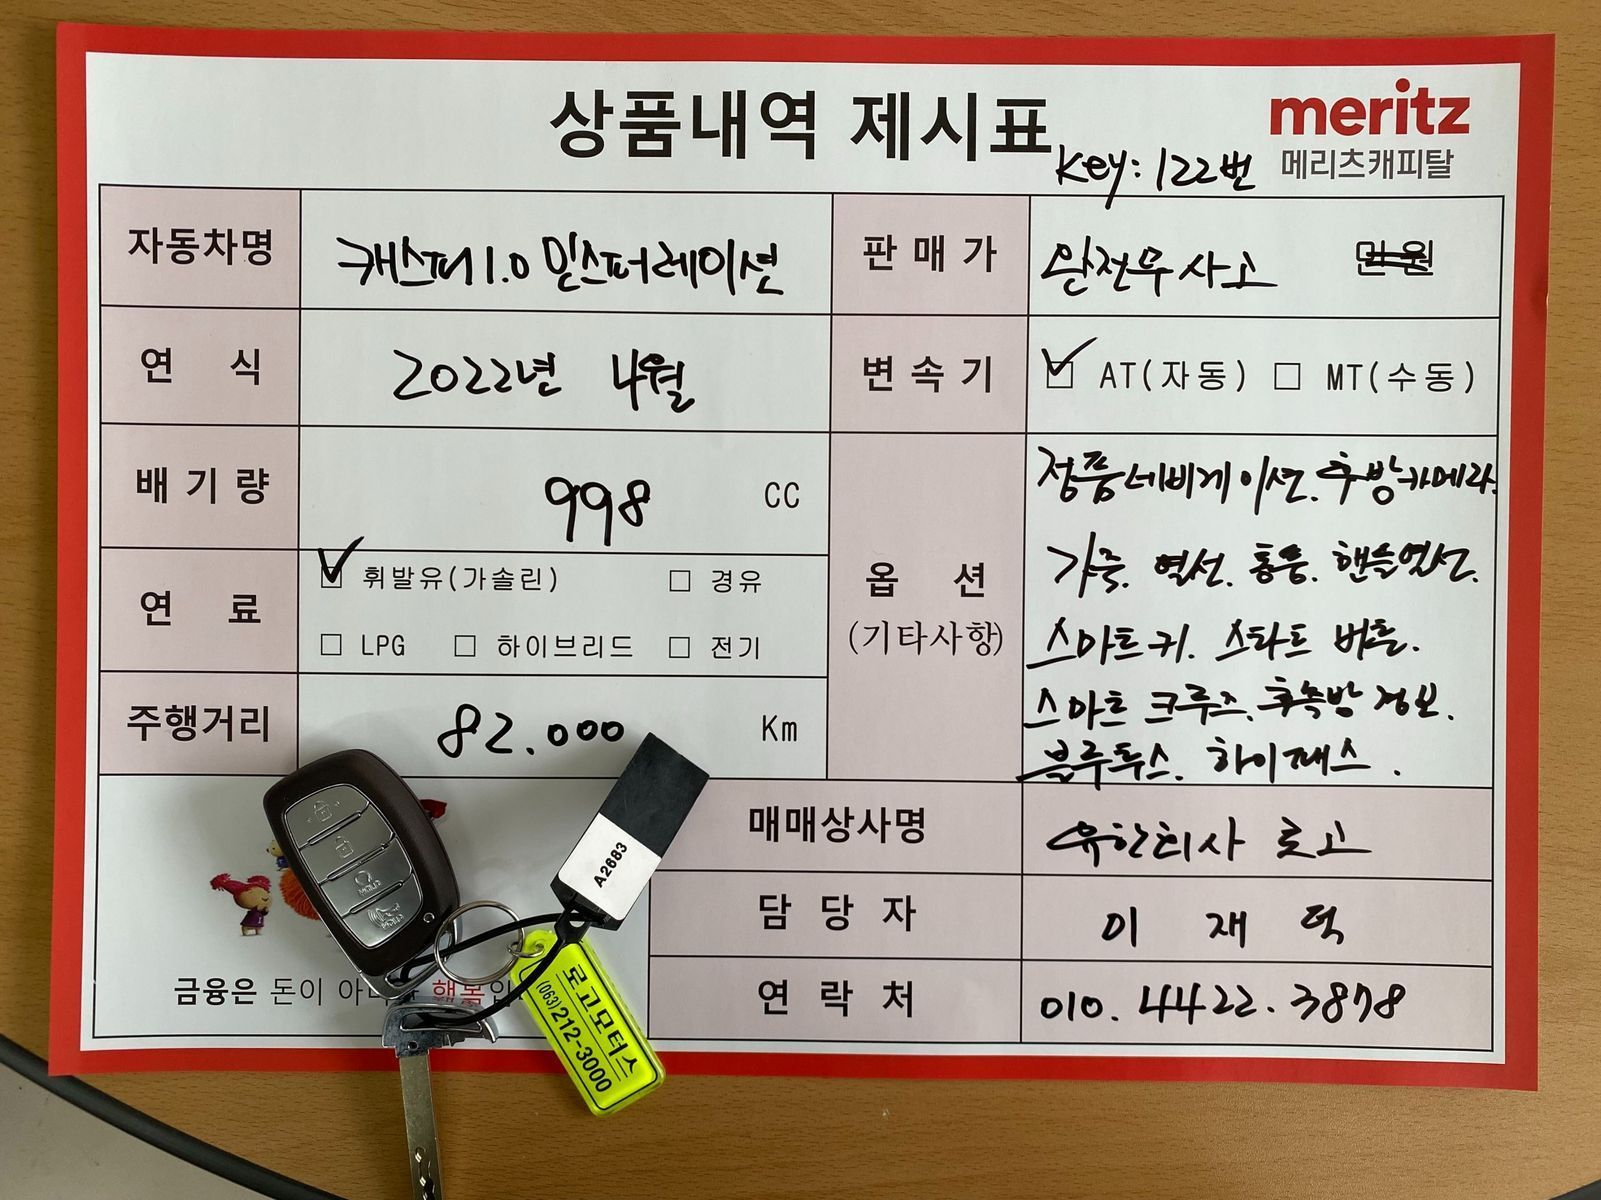 상품내역 제시표
meritz
메리츠캐피탈
Key: 122번
자동차명 캐스퍼 1.0 인스퍼레이션
판매가 완전무사고 만원
연식 2022년 4월
변속기 ☑ AT(자동) □ MT(수동)
배기량 998 CC
연료 ☑ 휘발유(가솔린) □ 경유
□ LPG □ 하이브리드 □ 전기
주행거리 82.000 Km
옵션
(기타사항)
정품네비게이션. 후방카메라.
가죽. 열선. 통풍. 핸들열선.
스마트키. 스타트 버튼.
스마트 크루즈. 후측방 경보.
블루투스. 하이패스.
매매상사명 유한회사 로고
담당자 이재덕
연락처 010. 4422. 3878
금융은 돈이 행복
A2683
로고모터스
(063)212-3000